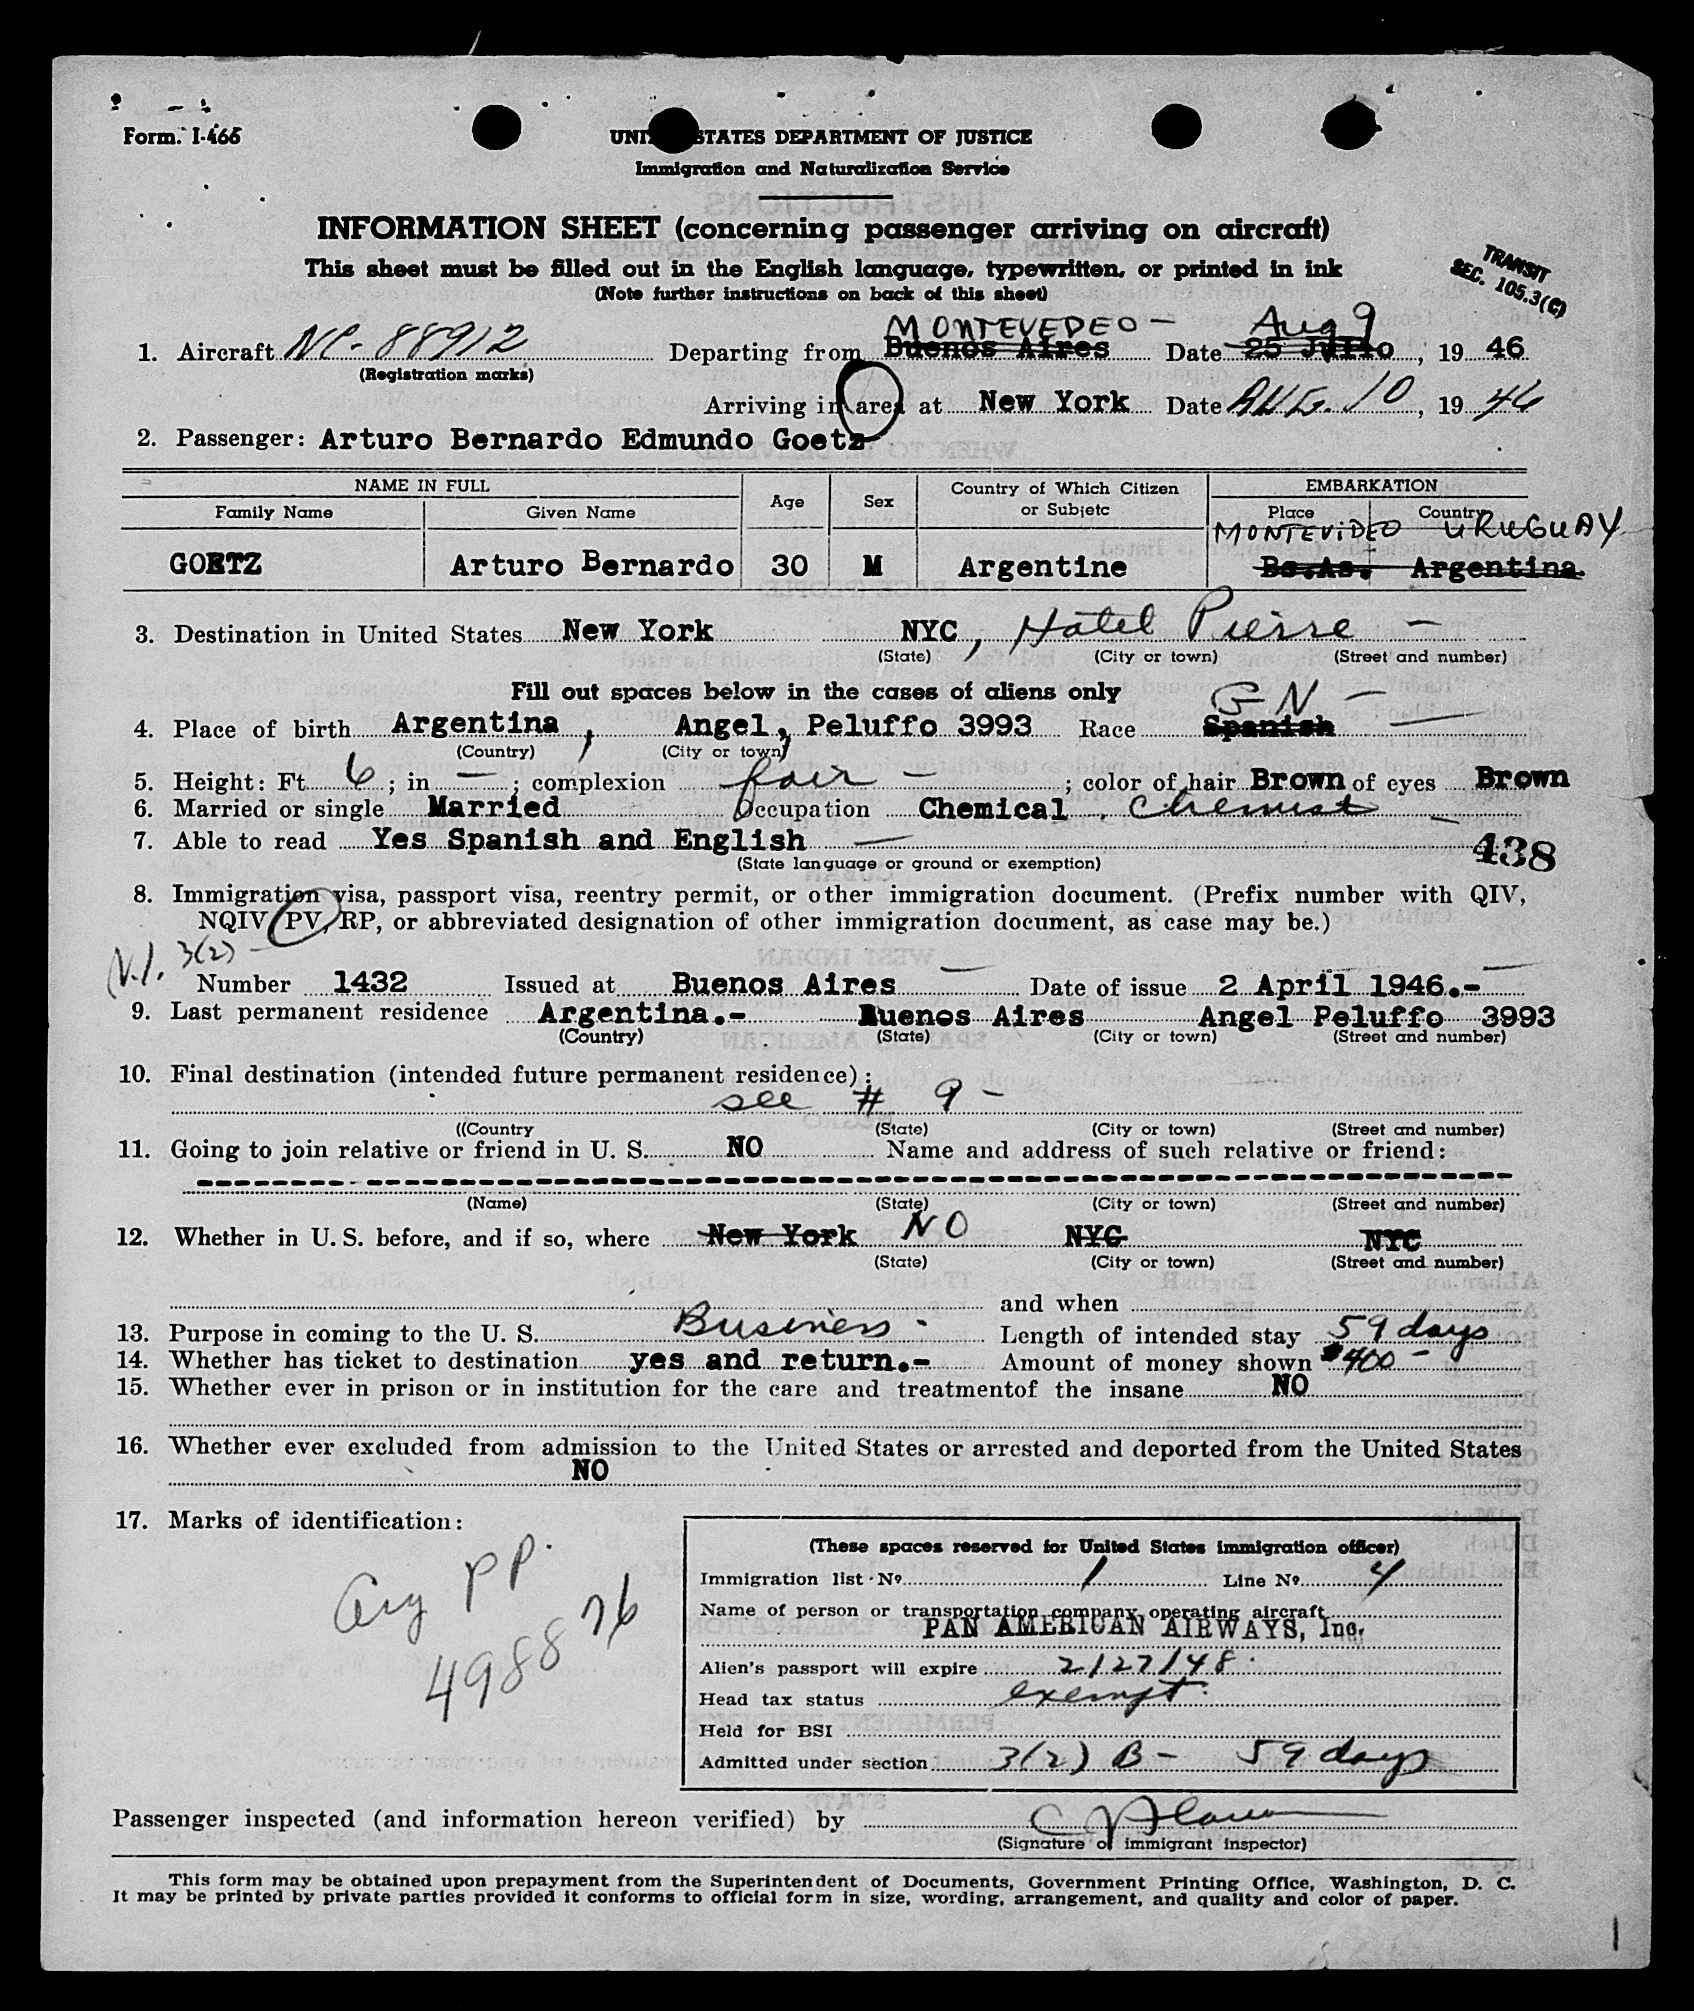 Form. I-466
UNITED STATES DEPARTMENT OF JUSTICE
Immigration and Naturalization Service
INFORMATION SHEET (concerning passenger arriving on aircraft)
This sheet must be filled out in the English language, typewritten, or printed in ink
(Note further instructions on back of this sheet)
TRANSIT
SEC. 105.3(C)
MONTEVEDEO - Aug 9
1. Aircraft NC-88912 Departing from Buenos Aires Date 25 Julio, 1946
(Registration marks)
Arriving in area at New York Date AUG. 10, 1946
2. Passenger: Arturo Bernardo Edmundo Goetz
NAME IN FULL Age Sex Country of Which Citizen or Subjetc EMBARKATION
Family Name Given Name Place Country
MONTEVIDEO URUGUAY
GOETZ Arturo Bernardo 30 M Argentine Bs.As. Argentina.
3. Destination in United States New York NYC, Hotel Pierre -
(State) (City or town) (Street and number)
Fill out spaces below in the cases of aliens only
GN -
4. Place of birth Argentina, Angel, Peluffo 3993 Race Spanish
(Country) (City or town)
5. Height: Ft. 6; in —; complexion fair -; color of hair Brown of eyes Brown
6. Married or single Married Occupation Chemical. Chemist
7. Able to read Yes Spanish and English —
(State language or ground or exemption)
438
8. Immigration visa, passport visa, reentry permit, or other immigration document. (Prefix number with QIV,
NQIV, PV, RP, or abbreviated designation of other immigration document, as case may be.)
N.I. 3(2) -
Number 1432 Issued at Buenos Aires Date of issue 2 April 1946.-
9. Last permanent residence Argentina.- Buenos Aires Angel Peluffo 3993
(Country) (State) (City or town) (Street and number)
10. Final destination (intended future permanent residence):
see # 9 -
((Country (State) (City or town) (Street and number)
11. Going to join relative or friend in U. S. NO Name and address of such relative or friend:
(Name) (State) (City or town) (Street and number)
12. Whether in U. S. before, and if so, where New York NO NYC NYC
(State) (City or town) (Street and number)
and when
13. Purpose in coming to the U. S. Business - Length of intended stay 59 days
14. Whether has ticket to destination yes and return.- Amount of money shown $400 -
15. Whether ever in prison or in institution for the care and treatmentof the insane NO
16. Whether ever excluded from admission to the United States or arrested and deported from the United States
NO
17. Marks of identification:
Arg PP.
498876
(These spaces reserved for United States immigration officer)
Immigration list Nº 1 Line Nº 4
Name of person or transportation company operating aircraft
PAN AMERICAN AIRWAYS, Inc.
Alien's passport will expire 2/27/48.
Head tax status exempt.
Held for BSI
Admitted under section 3(2) B - 59 days
Passenger inspected (and information hereon verified) by
(Signature of immigrant inspector)
This form may be obtained upon prepayment from the Superintendent of Documents, Government Printing Office, Washington, D. C.
It may be printed by private parties provided it conforms to official form in size, wording, arrangement, and quality and color of paper.